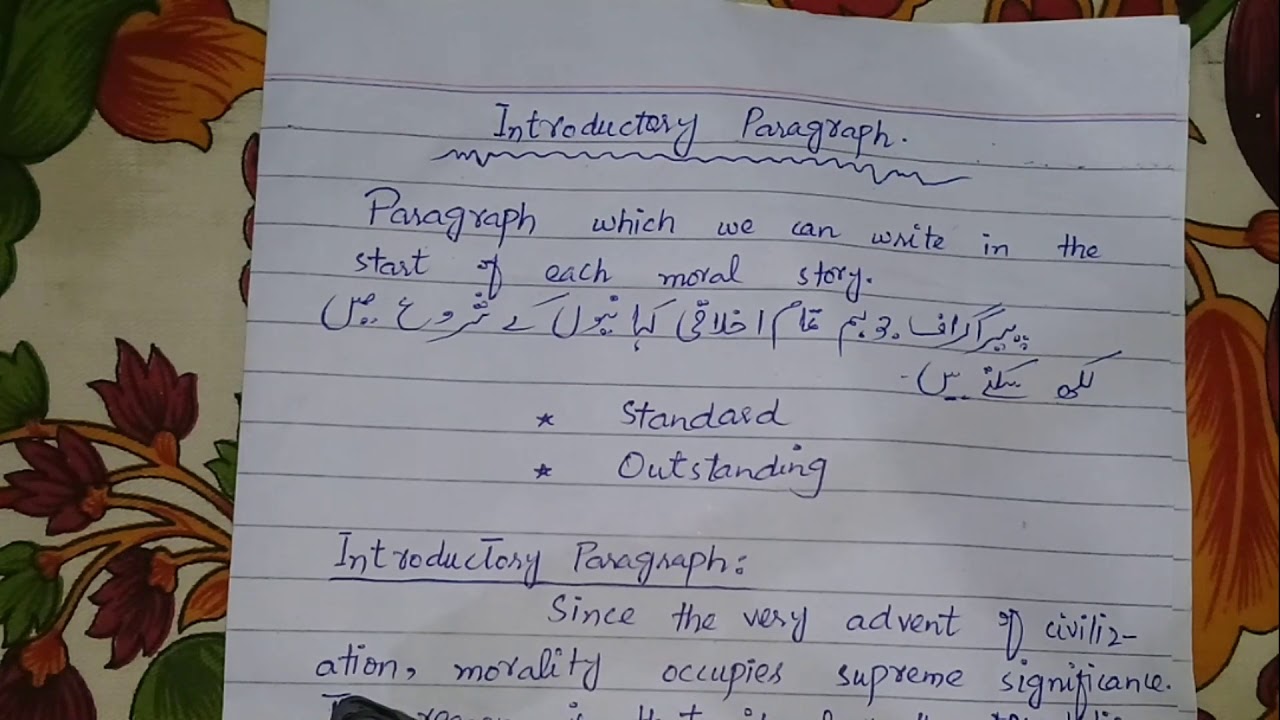 Introductory Paragraph.
Paragraph which we can write in the
start of each moral story.
یہ پیراگراف جو ہم تمام اخلاقی کہانیوں کے شروع میں
لکھ سکتے ہیں۔
* Standard
* Outstanding
Introductory Paragraph:
Since the very advent of civiliz-
ation, morality occupies supreme significance.
is that it